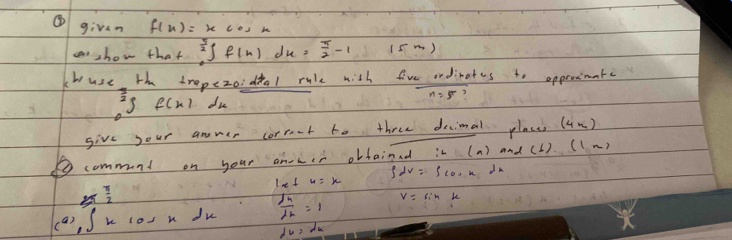 ① given f(x) = x cos x
(a) show that ∫₀^(π/2) f(x) dx = π/2 - 1 (5 m)
(b) use the trapezoidal rule with five ordinates to approximate
∫₀^(π/2) f(x) dx
n = 5?
give your answer correct to three decimal places (4m)
(c) comment on your answer obtained in (a) and (b). (1 m)
(a) ∫₀^(π/2) x cos x dx
let u = x
du/dx = 1
du = dx
∫dv = ∫cos x dx
v = sin x